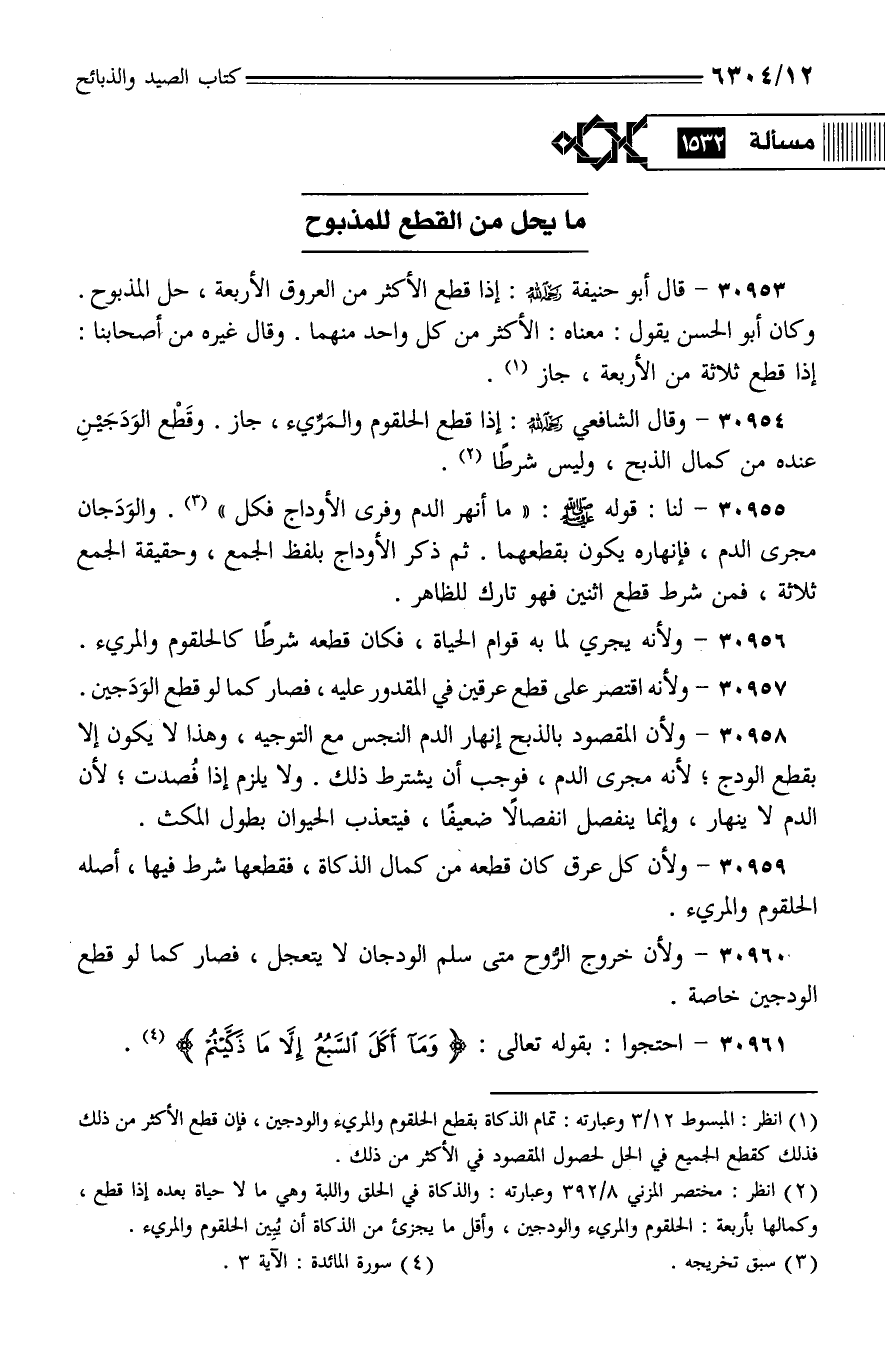 ٦٣٠٤/١٢ كتاب الصيد والذبائح
مسألة ١٥٣٢
ما يحل من القطع للمذبوح
٣٠٩٥٣ - قال أبو حنيفة رحمه الله : إذا قطع الأكثر من العروق الأربعة ، حل المذبوح .
وكان أبو الحسن يقول : معناه : الأكثر من كل واحد منهما . وقال غيره من أصحابنا :
إذا قطع ثلاثة من الأربعة ، جاز (١) .
٣٠٩٥٤ - وقال الشافعي رحمه الله : إذا قطع الحلقوم والمَرِّيء ، جاز . وقَطْع الوَدَجَيْنِ
عنده من كمال الذبح ، وليس شرطًا (٢) .
٣٠٩٥٥ - لنا : قوله ﷺ : « ما أنهر الدم وفرى الأوداج فكل » (٣) . والوَدَجان
مجرى الدم ، فإنهاره يكون بقطعهما . ثم ذكر الأوداج بلفظ الجمع ، وحقيقة الجمع
ثلاثة ، فمن شرط قطع اثنين فهو تارك للظاهر .
٣٠٩٥٦ - ولأنه يجري لما به قوام الحياة ، فكان قطعه شرطًا كالحلقوم والمريء .
٣٠٩٥٧ - ولأنه اقتصر على قطع عرقين في المقدور عليه ، فصار كما لو قطع الوَدَجين .
٣٠٩٥٨ - ولأن المقصود بالذبح إنهار الدم النجس مع التوجيه ، وهذا لا يكون إلا
بقطع الودج ؛ لأنه مجرى الدم ، فوجب أن يشترط ذلك . ولا يلزم إذا فُصدت ؛ لأن
الدم لا ينهار ، وإنما ينفصل انفصالًا ضعيفًا ، فيتعذب الحيوان بطول المكث .
٣٠٩٥٩ - ولأن كل عرق كان قطعه من كمال الذكاة ، فقطعها شرط فيها ، أصله
الحلقوم والمريء .
٣٠٩٦٠ - ولأن خروج الرُّوح متى سلم الودجان لا يتعجل ، فصار كما لو قطع
الودجين خاصة .
٣٠٩٦١ - احتجوا : بقوله تعالى : ﴿ وَمَآ أَكَلَ ٱلسَّبُعُ إِلَّا مَا ذَكَّيْتُمْ ﴾ (٤) .
(١) انظر : المبسوط ٣/١٢ وعبارته : تمام الذكاة بقطع الحلقوم والمريء والودجين ، فإن قطع الأكثر من ذلك
فذلك كقطع الجميع في الحل لحصول المقصود في الأكثر من ذلك .
(٢) انظر : مختصر المزني ٣٩٢/٨ وعبارته : والذكاة في الحلق واللبة وهي ما لا حياة بعده إذا قطع ،
وكمالها بأربعة : الحلقوم والمريء والودجين ، وأقل ما يجزئ من الذكاة أن يُبِين الحلقوم والمريء .
(٣) سبق تخريجه . (٤) سورة المائدة : الآية ٣ .